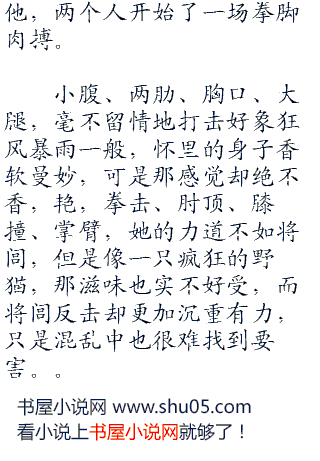 他，两个人开始了一场拳脚
肉搏。
小腹、两肋、胸口、大
腿，毫不留情地打击好象狂
风暴雨一般，怀里的身子香
软曼妙，可是那感觉却绝不
香，艳，拳击、肘顶、膝
撞、掌臂，她的力道不如将
闾，但是像一只疯狂的野
猫，那滋味也实不好受，而
将闾反击却更加沉重有力，
只是混乱中也很难找到要
害。。
书屋小说网 www.shu05.com
看小说上书屋小说网就够了！